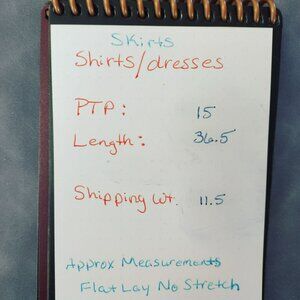 Skirts
Shirts/dresses
PTP: 15
Length: 36.5
Shipping Wt. 11.5
Approx Measurements
Flat Lay No Stretch